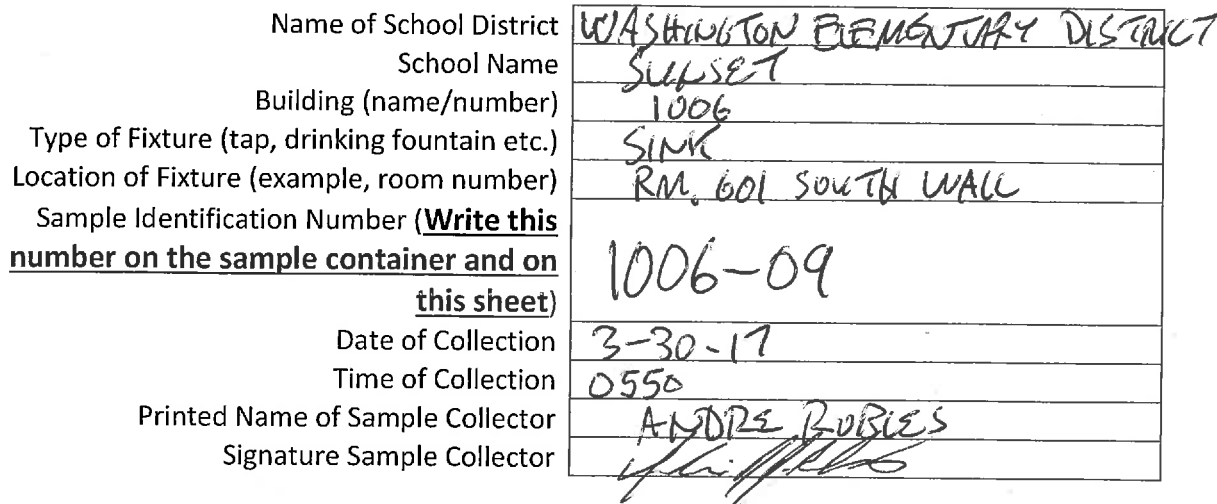 Name of School District WASHINGTON ELEMENTARY DISTRICT
School Name SUNSET
Building (name/number) 1006
Type of Fixture (tap, drinking fountain etc.) SINK
Location of Fixture (example, room number) RM. 601 SOUTH WALL
Sample Identification Number (Write this
number on the sample container and on
this sheet) 1006-09
Date of Collection 3-30-17
Time of Collection 0550
Printed Name of Sample Collector ANDRE ROBLES
Signature Sample Collector